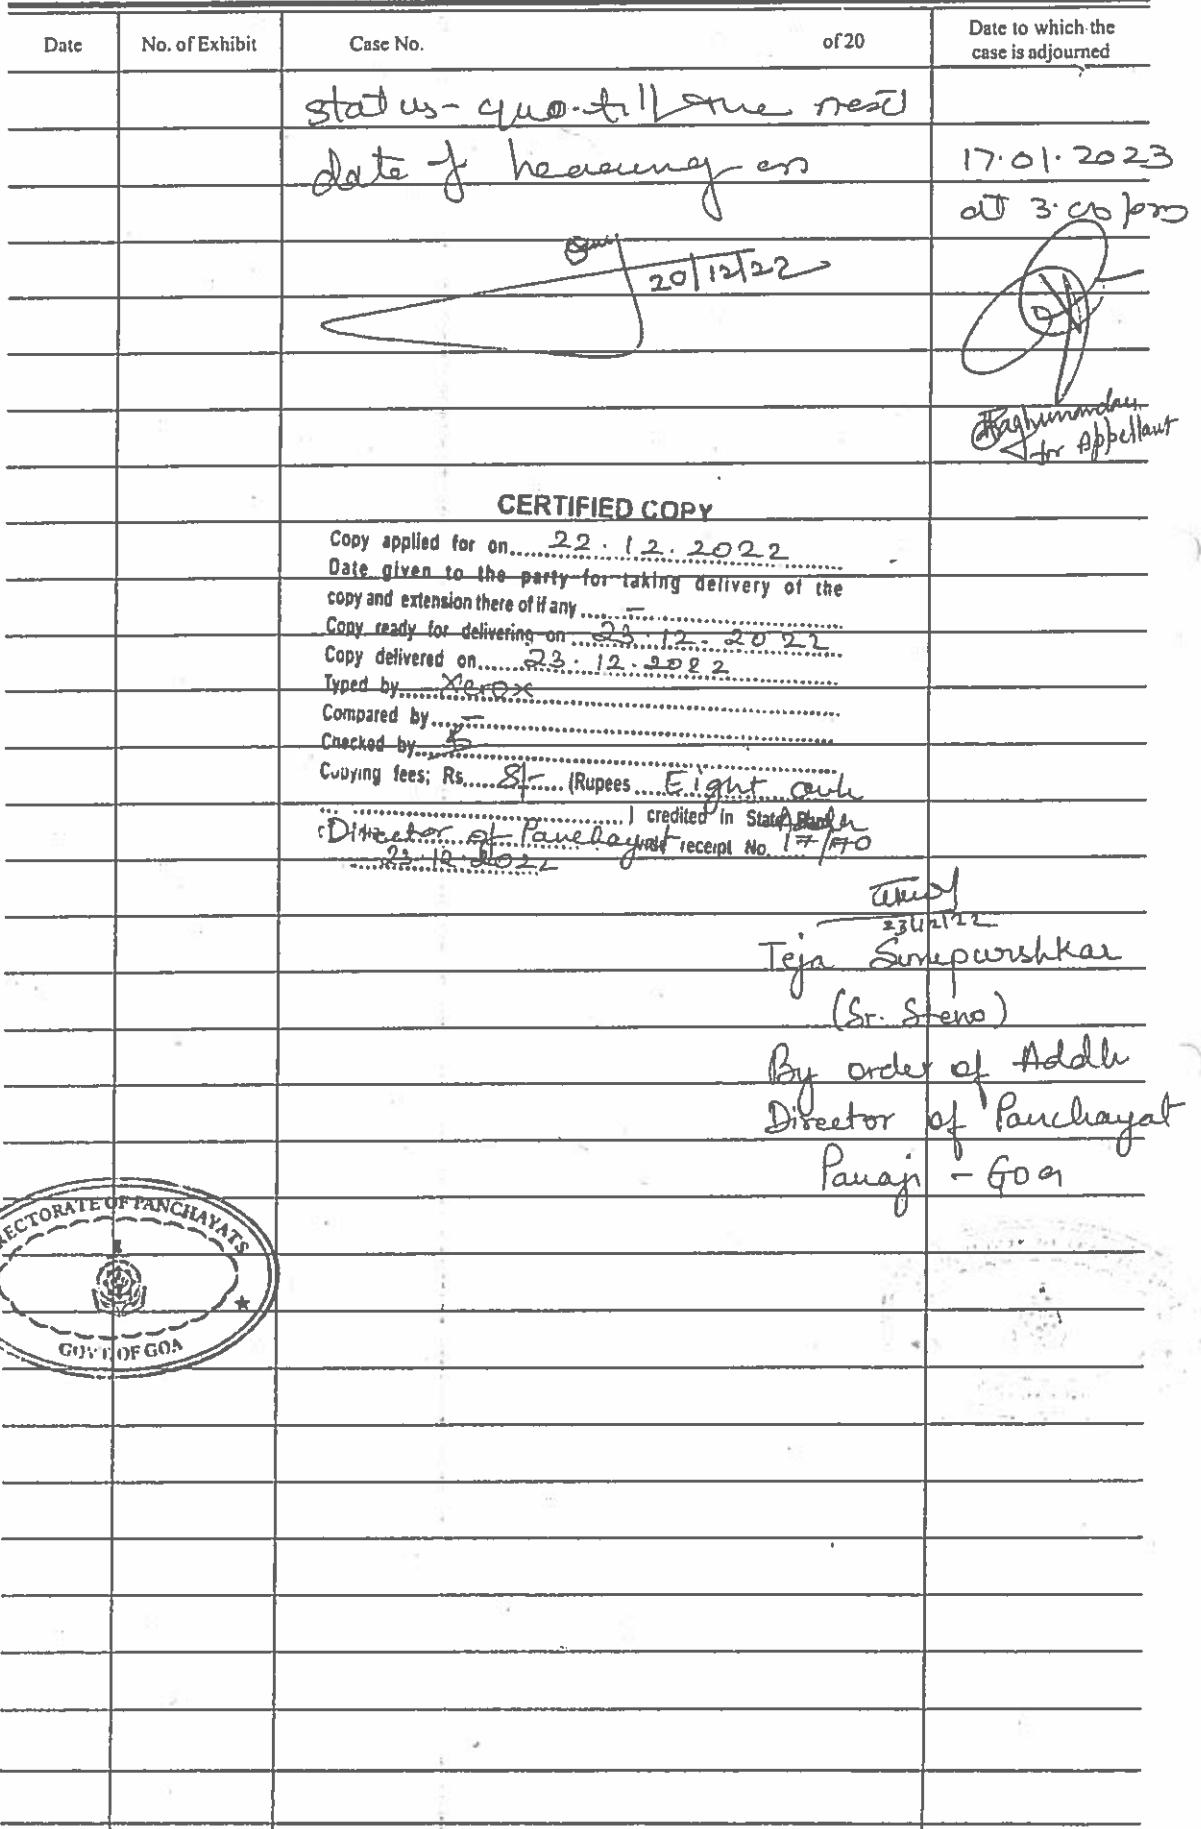 Date No. of Exhibit Case No. of 20 Date to which the case is adjourned
status-quo till the next
date of hearing on 17.01.2023
at 3.00 pm
20/12/22
Raghunandan
for Appellant
CERTIFIED COPY
Copy applied for on 22.12.2022
Date given to the party for taking delivery of the
copy and extension there of if any –
Copy ready for delivering on 23.12.2022
Copy delivered on 23.12.2022
Typed by Xerox
Compared by –
Checked by
Copying fees; Rs. 8/- (Rupees Eight only
) credited in State
Director of Panchayat receipt No. 17/
23.12.2022
23/12/22
Teja
(Sr. Steno)
By order of Addl
Director of Panchayat
Panaji - Goa
RECTORATE OF PANCHAYATS
GOVT. OF GOA